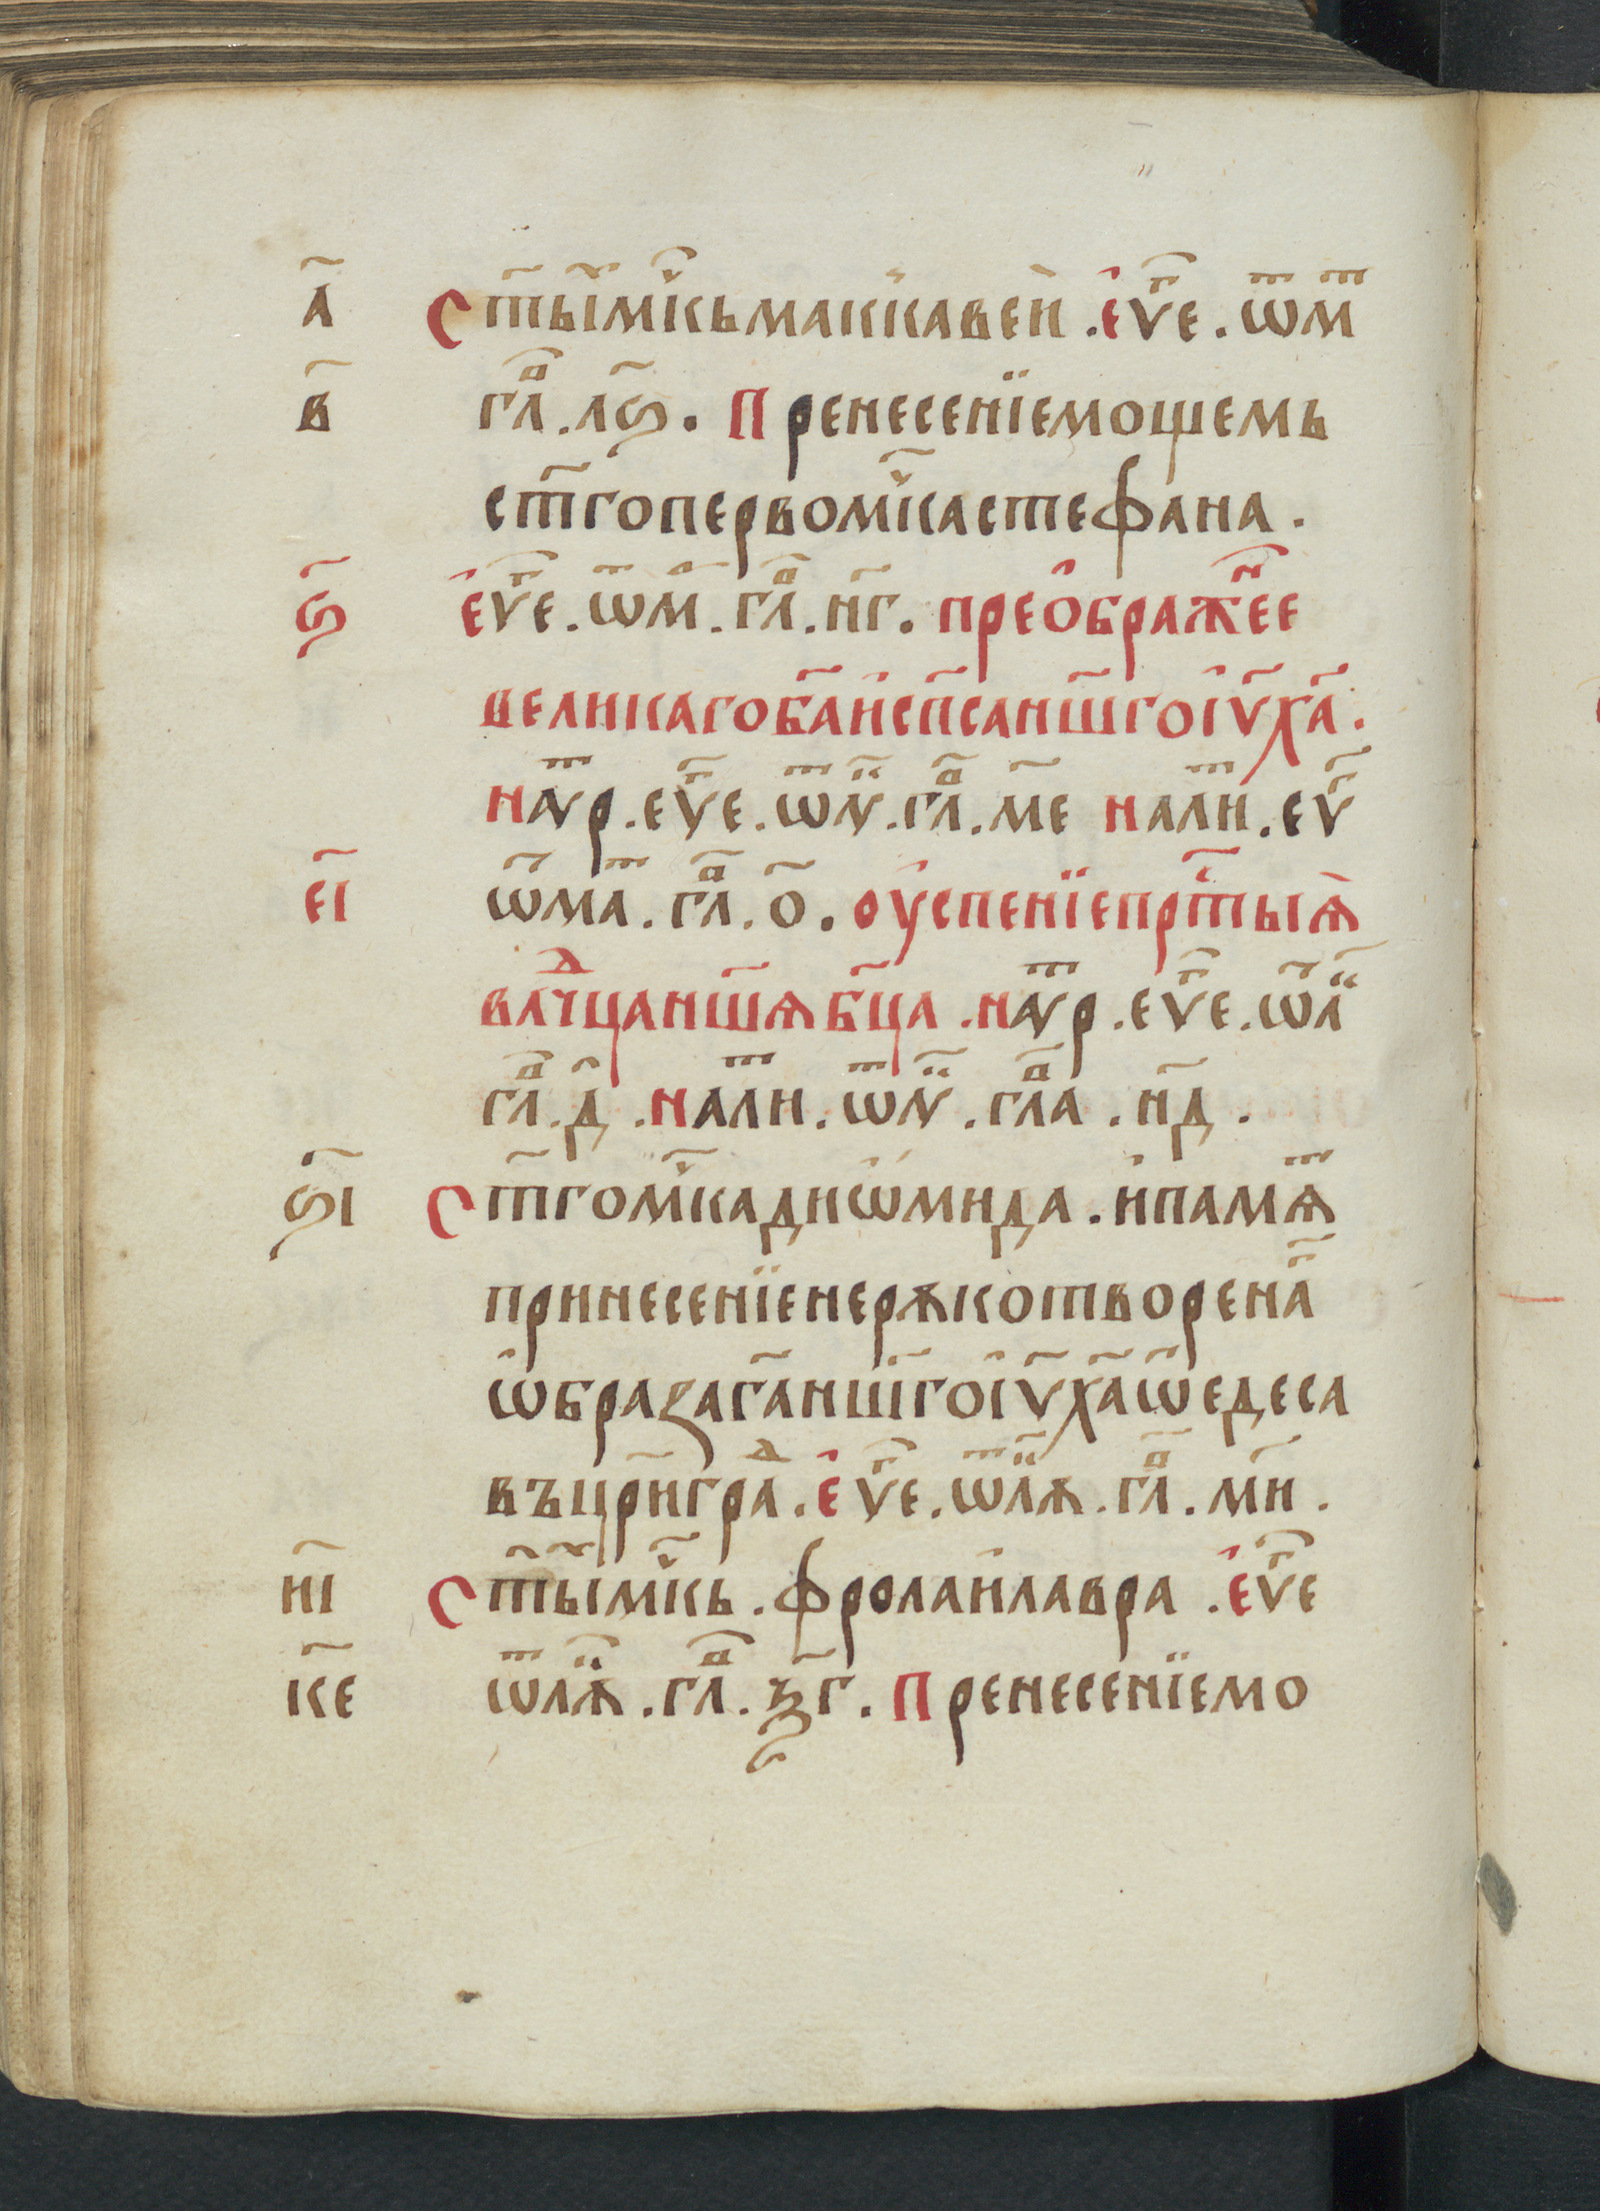 а҃ ст҃ы́хмч҃къмаккавеи . є҆ѵⷢ҇е . ѿм
в҃ гл҃а . лѕ҃ . Пренесенїемощемь
ст҃гопервомч҃кастефана .
ѕ҃ є҆ѵⷢ҇е . ѿм . гл҃а . нг҃ . преѻбражⷩ҇ее
великагоба҃и҆сп҃санш҃гоі҆ѵ҃ха҃ .
наѵⷮр . еѵⷢ҇е . ѿлꙋ . гл҃а . ме҃ налиⷮ . еѵⷢ҇
еі҃ ѿма . гл҃а . о҃ . оу҆спенїепрⷭ҇тыѧ
влⷣчцанш҃ѧбц҃а . наѵⷮр . еѵⷢ҇е . ѿл
гл҃а . д҃ . налиⷮ . ѿлꙋ . гл҃а . нд҃ .
ѕі҃ ст҃гомч҃кадиѡ҆мида . и҆памѧⷮ
принесенїенерѫкотворенаⷢ҇
ѡ҆бразага҃нш҃гоі҆ѵ҃ха҃ѿедеса
въцр҃игра́ⷣ . є҆ѵⷢ҇е . ѿлѫ . гл҃а . ми҃ .
иі҃ ст҃ы́хмч҃къ . фролаи҆лавра . є҆ѵⷢ҇е
ке҃ ѿлѫ . гл҃а . ѯг҃ . Пренесенїемо